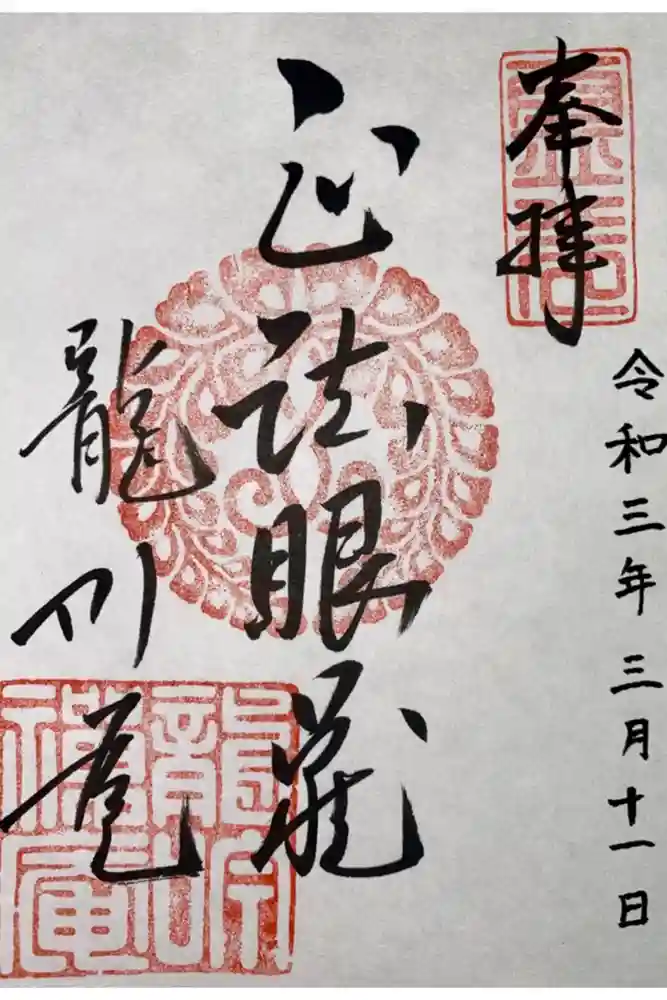 奉拝
令和三年三月十一日
正法眼蔵
龍吟庵